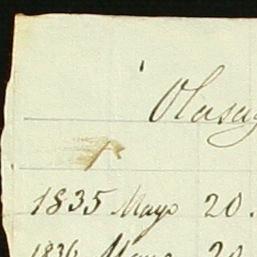 Olasag
1835 Mayo 20.
1836 Mayo 20